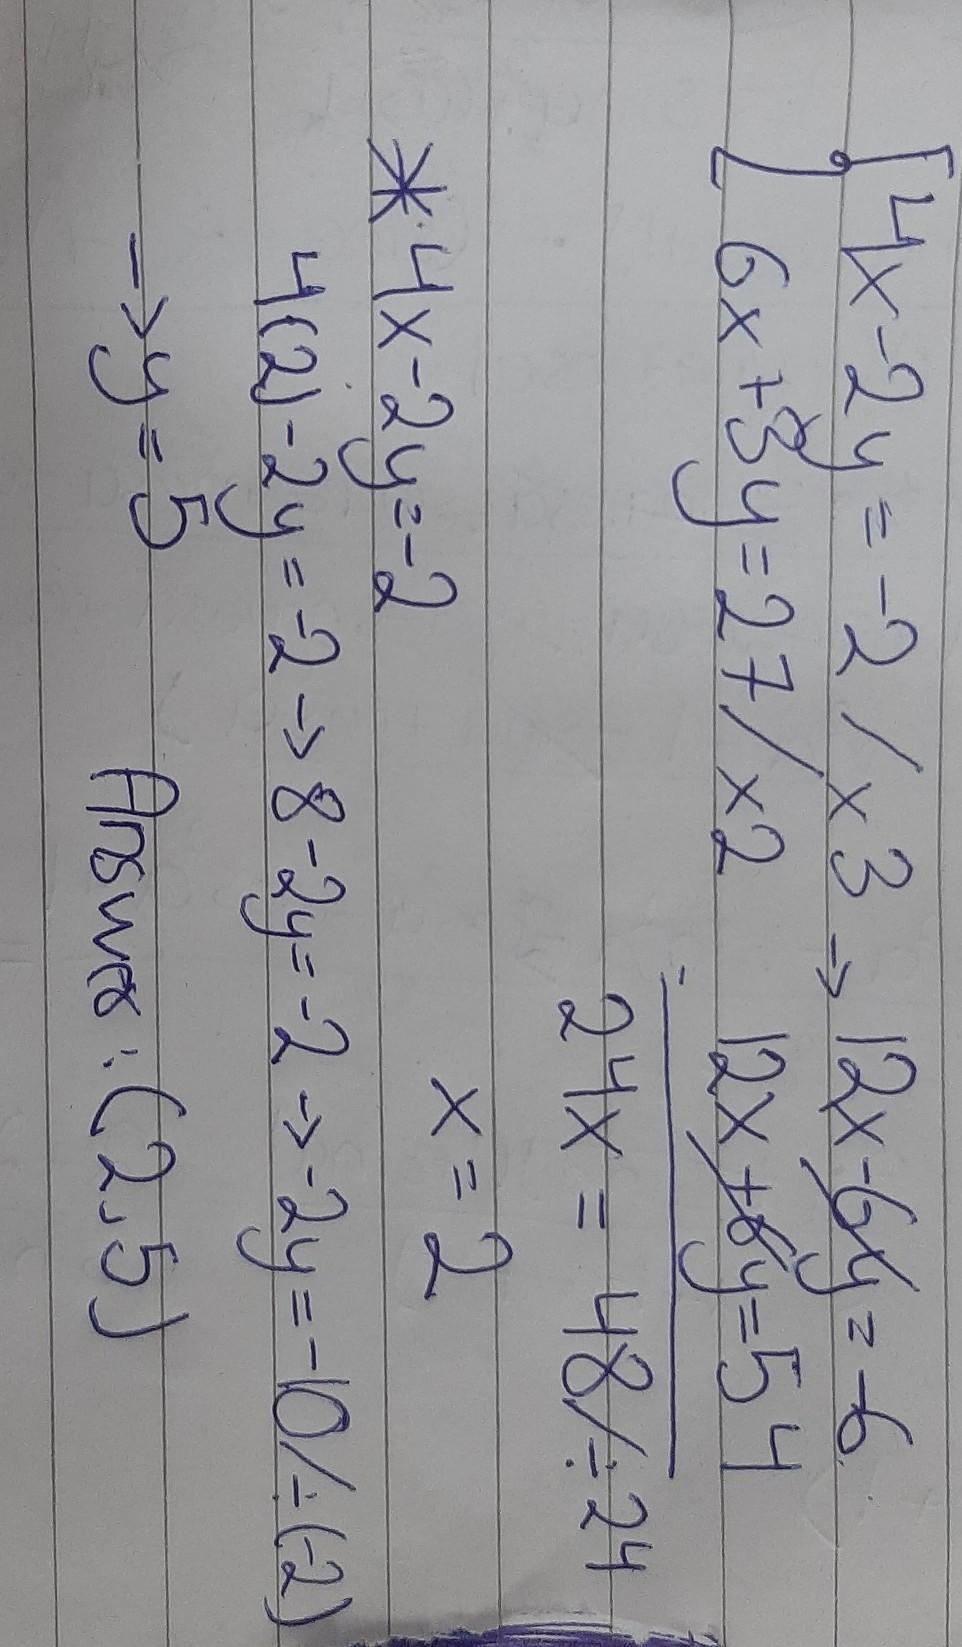 4x-2y=-2/x3→ 12x-6y=-6
6x+3y=27/x2 12x+6y=54
24x = 48/÷24
x=2
*4x-2y=-2
4(2)-2y=-2→8-2y=-2→-2y=-10/÷(-2)
→y=5 Answer: (2,5)